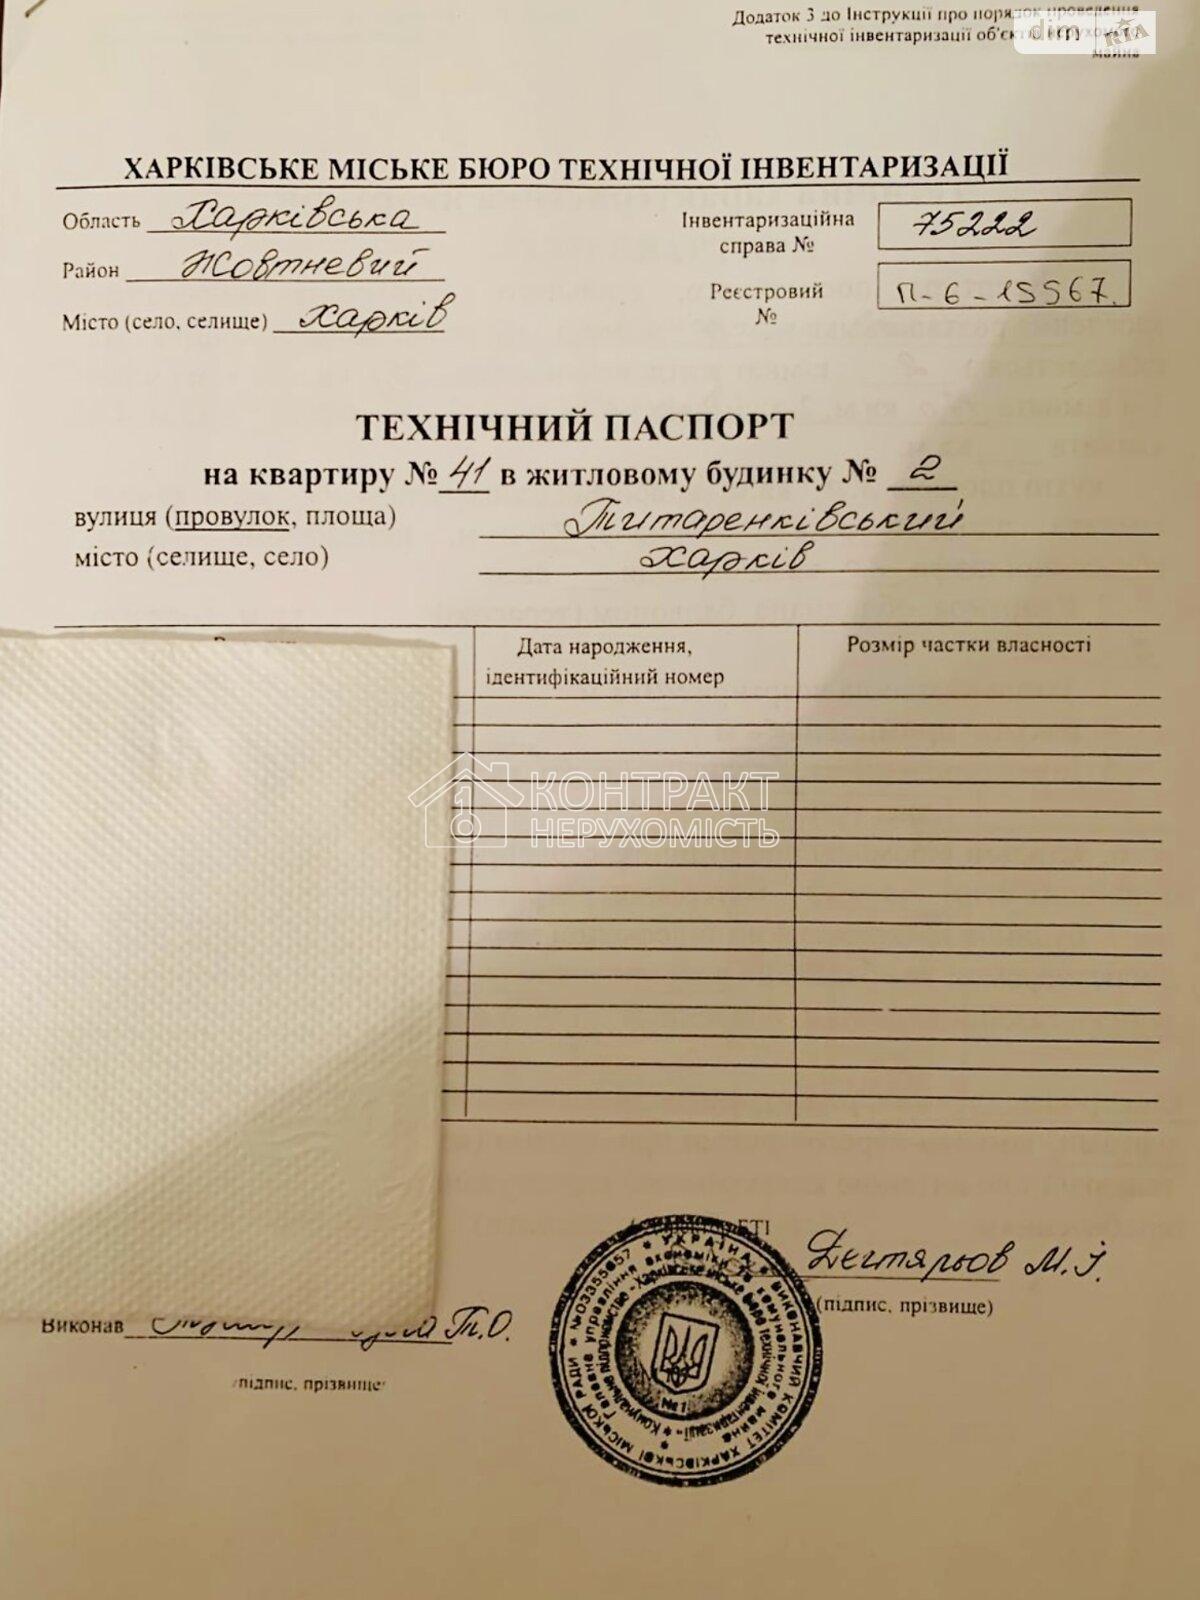 Додаток 3 до Інструкції про порядок проведення
технічної інвентаризації об'єктів нерухомого
майна
dim RIA
ХАРКІВСЬКЕ МІСЬКЕ БЮРО ТЕХНІЧНОЇ ІНВЕНТАРИЗАЦІЇ
Область Харківська
Інвентаризаційна
справа № 75222
Район Жовтневий
Реєстровий
№ П-6-15567.
Місто (село, селище) Харків
ТЕХНІЧНИЙ ПАСПОРТ
на квартиру № 41 в житловому будинку № 2
вулиця (провулок, площа) Титаренківський
місто (селище, село) Харків
Дата народження,
ідентифікаційний номер
Розмір частки власності
КОНТРАКТ
НЕРУХОМІСТЬ
БТІ
Дегтярьов М.І.
(підпис, прізвище)
Виконав Т.О.
підпис, прізвище
УКРАЇНА * ВИКОНАВЧИЙ КОМІТЕТ ХАРКІВСЬКОЇ МІСЬКОЇ РАДИ * №03355657
Головне управління економіки та комунального майна
Комунальне підприємство «Харківське міське бюро технічної інвентаризації»
№1